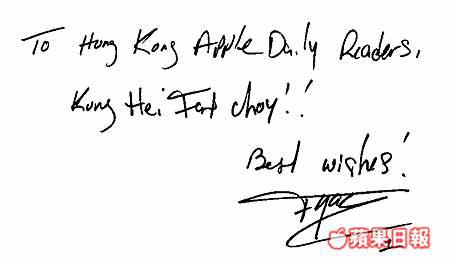 To Hong Kong Apple Daily Readers,
Kung Hei Fat Choy!!
Best wishes!
蘋果日報